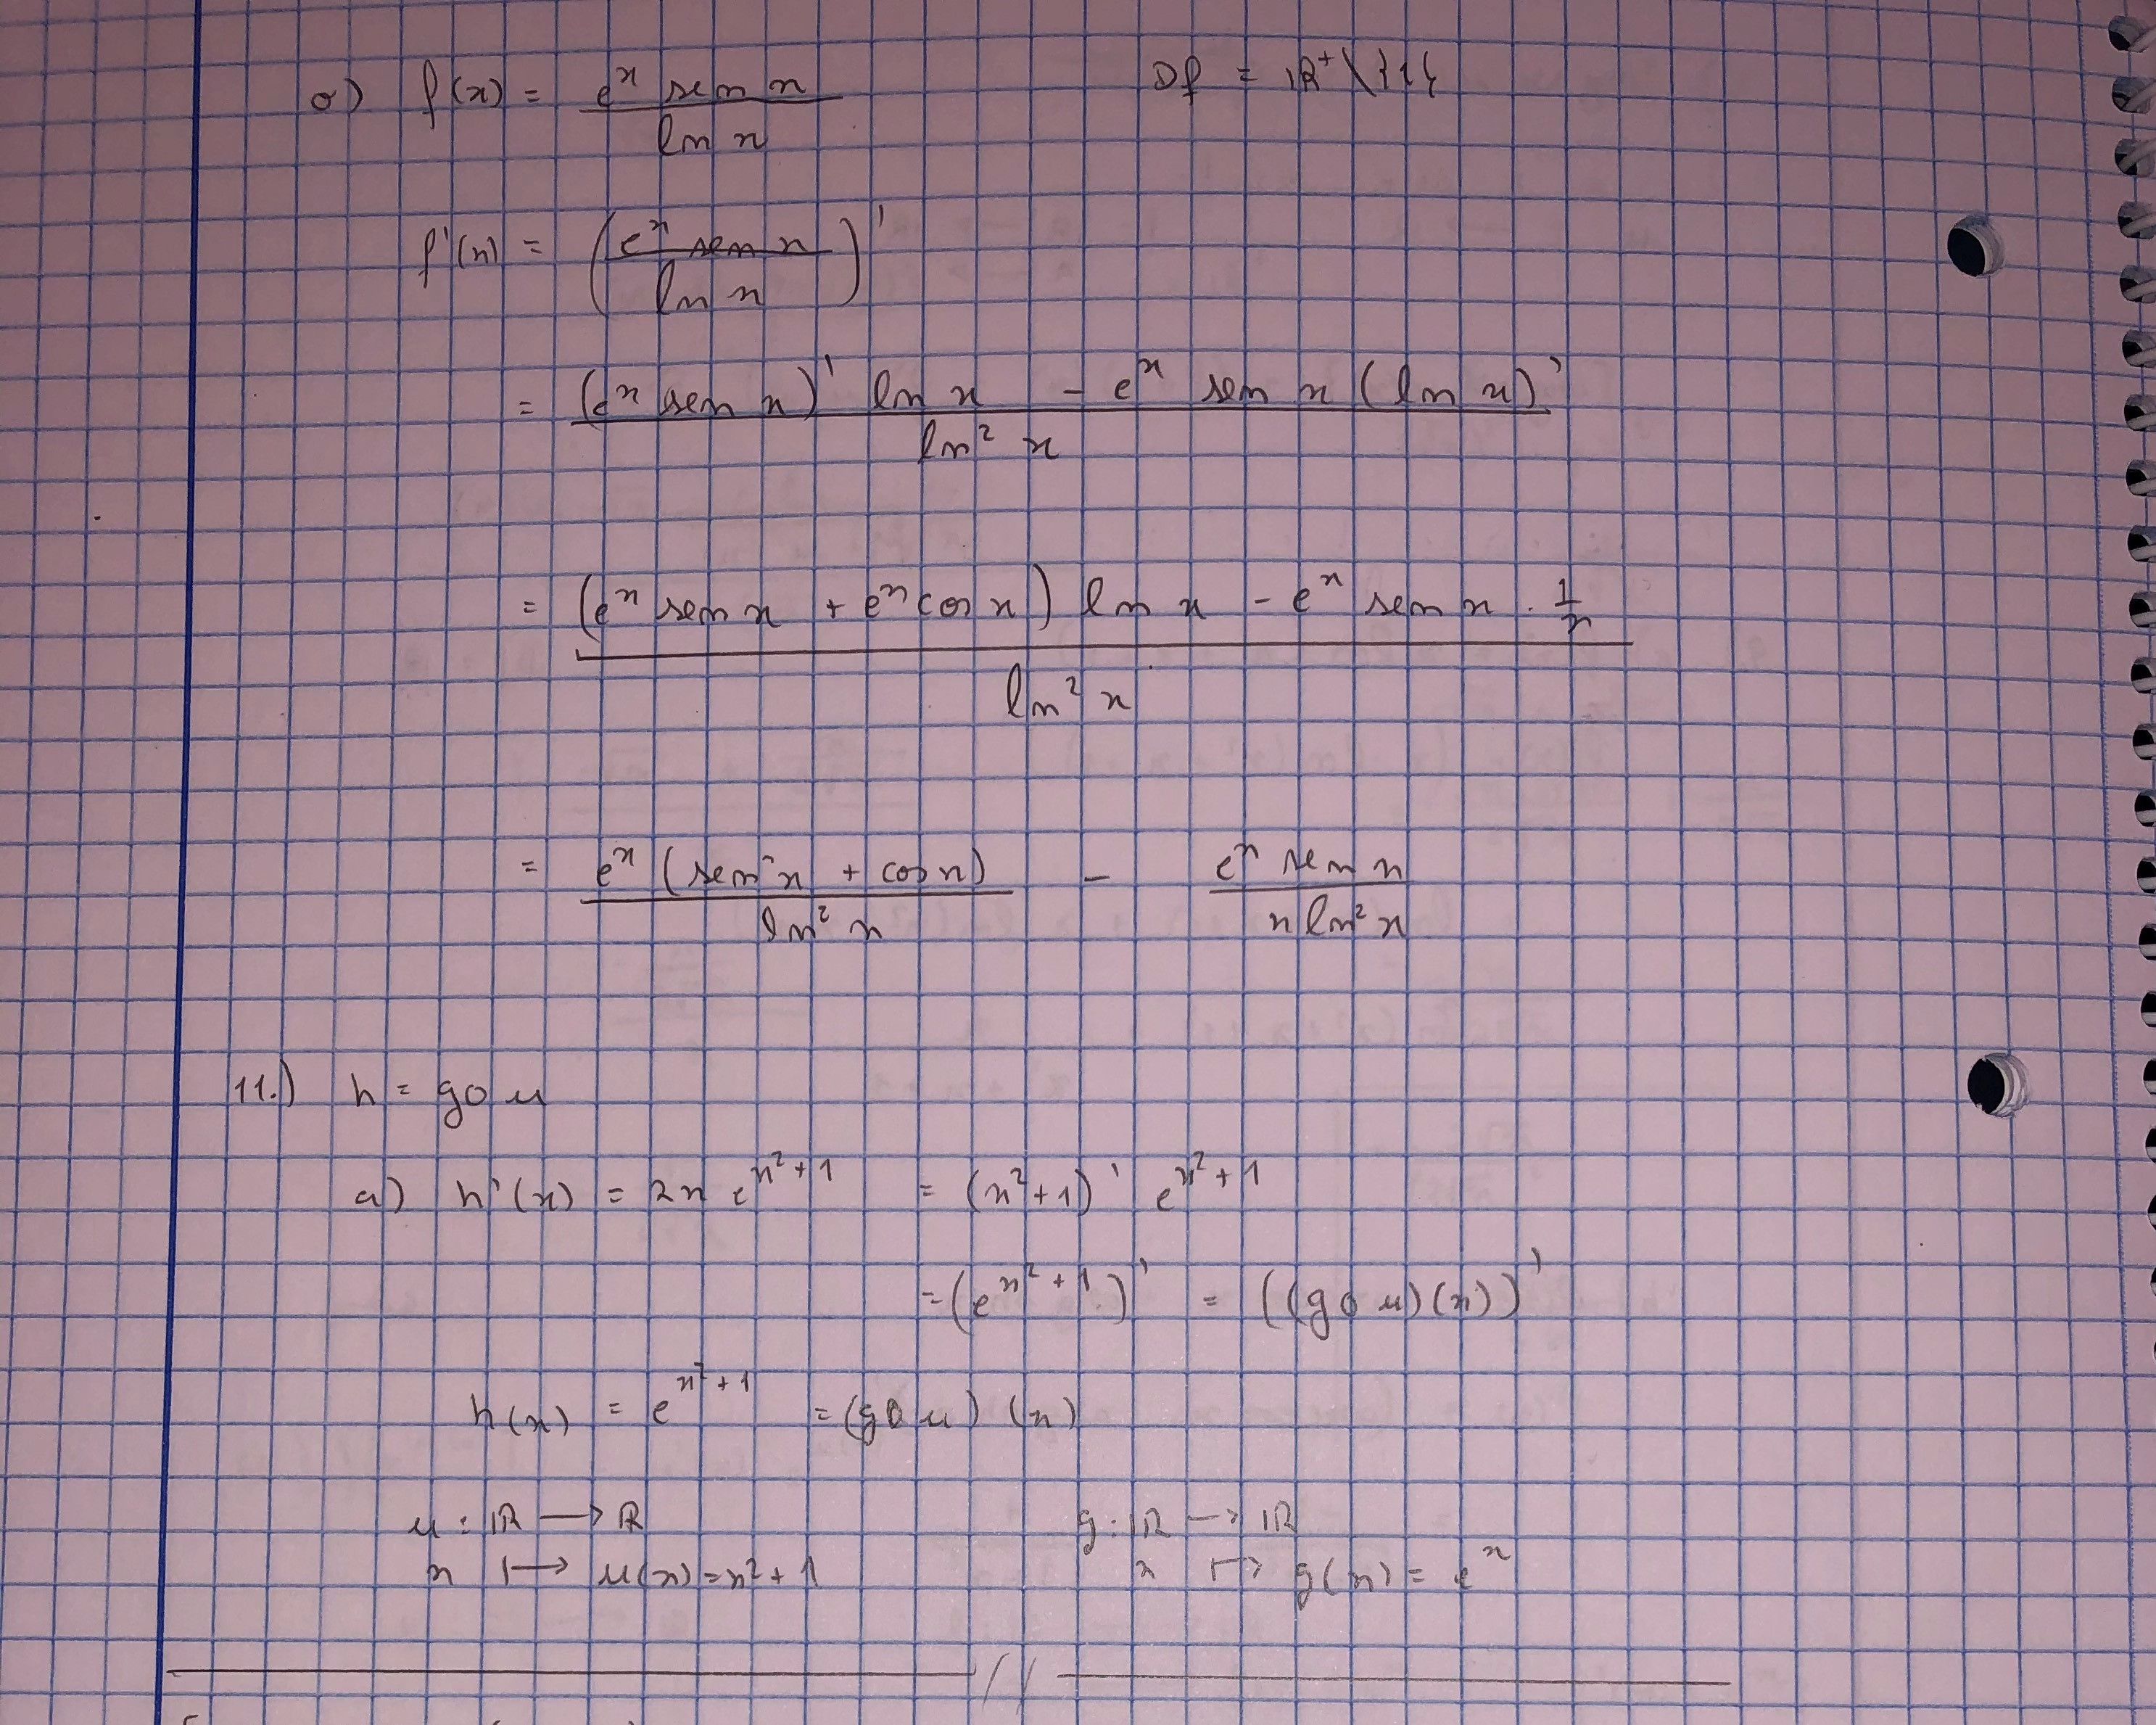 o) f(x) = e^x sen x / ln x    Df = IR^+ \ {1}
f'(x) = (e^x sen x / ln x)'
= (e^x sen x)' ln x - e^x sen x (ln x)' / ln² x
= (e^x sen x + e^x cos x) ln x - e^x sen x . 1/x / ln² x
= e^x (sen x + cos x) / ln² x - e^x sen x / x ln² x
11.) h = g o u
a) h'(x) = 2x e^(x²+1) = (x²+1)' e^(x²+1)
= (e^(x²+1))' = ((g o u)(x))'
h(x) = e^(x²+1) = (g o u)(x)
u : IR → IR    g : IR → IR
x ↦ u(x) = x²+1    x ↦ g(x) = e^x
//